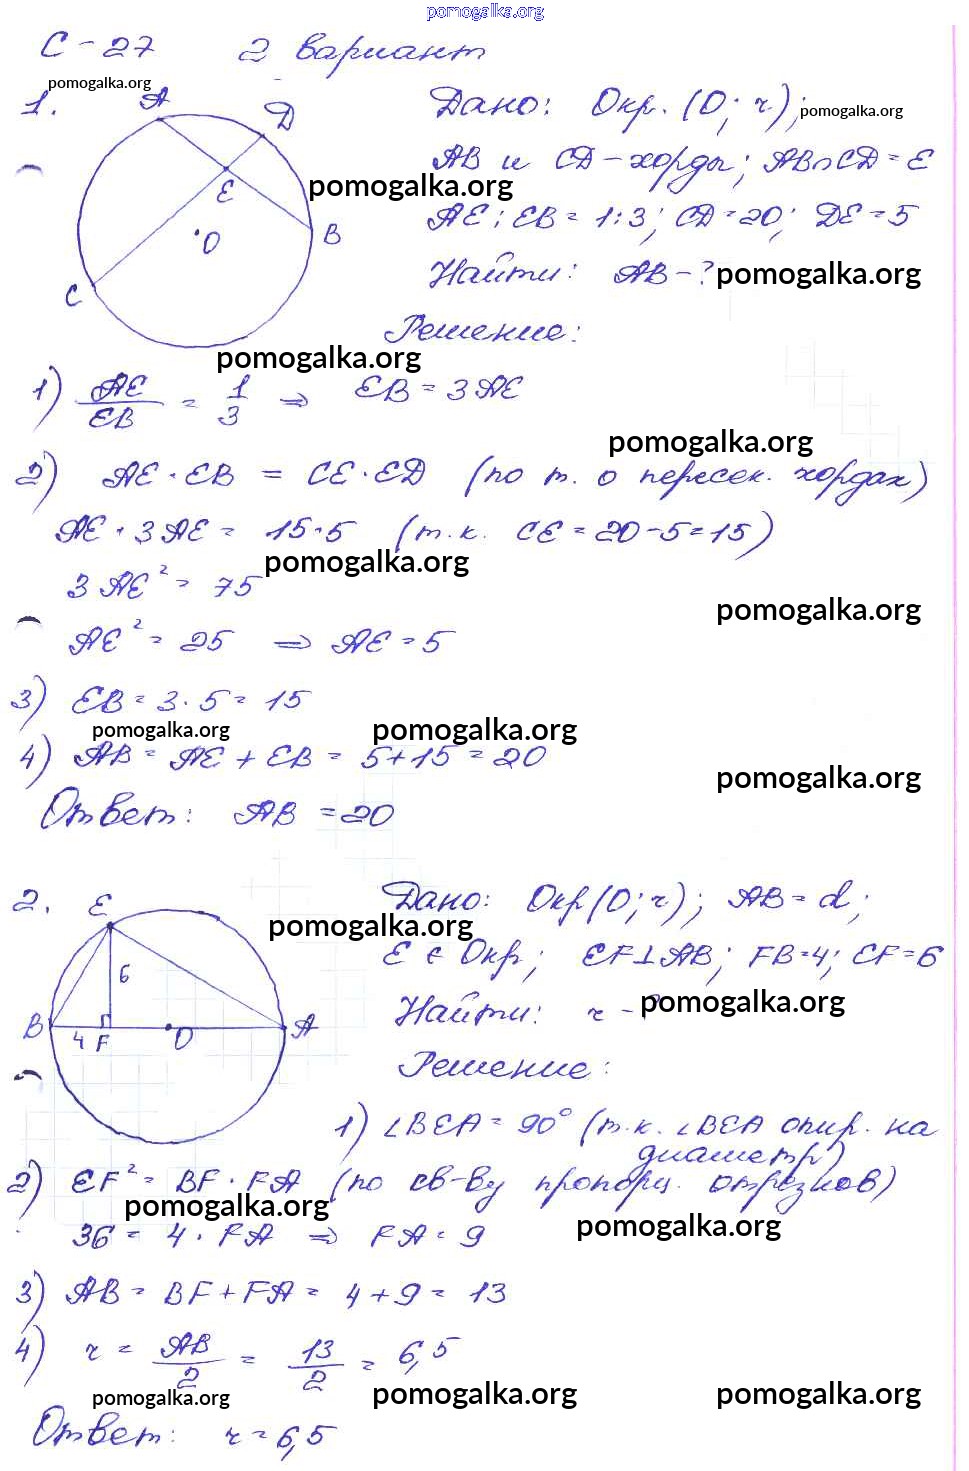 pomogalka.org
С-27 2 вариант
pomogalka.org
1.
A
D
E
O
B
C
Дано: Окр. (O; r); pomogalka.org
AB и CD - хорды; AB∩CD = E
pomogalka.org
AE : EB = 1:3; CD = 20; DE = 5
Найти: AB - ? pomogalka.org
Решение:
pomogalka.org
1) AE/EB = 1/3 ⇒ EB = 3AE
pomogalka.org
2) AE · EB = CE · ED (по т. о пересек. хордах)
AE · 3AE = 15·5 (т.к. CE = 20-5=15)
pomogalka.org
3AE² = 75
pomogalka.org
AE² = 25 ⇒ AE = 5
3) EB = 3·5 = 15
pomogalka.org pomogalka.org
4) AB = AE + EB = 5+15 = 20
pomogalka.org
Ответ: AB = 20
2.
E
6
B
4
F
O
A
Дано: Окр(O; r); AB = d;
pomogalka.org
E ∈ Окр; EF⊥AB; FB=4; EF=6
Найти: r - ?
pomogalka.org
Решение:
1) ∠BEA = 90° (т.к. ∠BEA опир. на
диаметр)
2) EF² = BF · FA (по св-ву пропорц. отрезков)
pomogalka.org pomogalka.org
36 = 4 · FA ⇒ FA = 9
3) AB = BF + FA = 4 + 9 = 13
4) r = AB/2 = 13/2 = 6,5
pomogalka.org pomogalka.org pomogalka.org
Ответ: r = 6,5